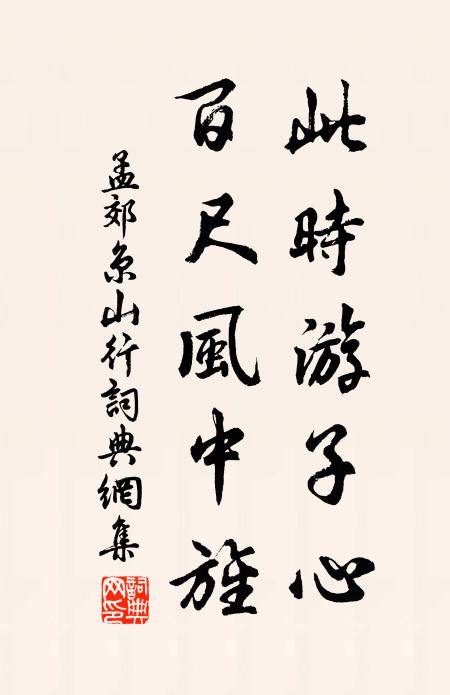 此時游子心
百尺風中旌
孟郊京山行詞典網集
詞典網印